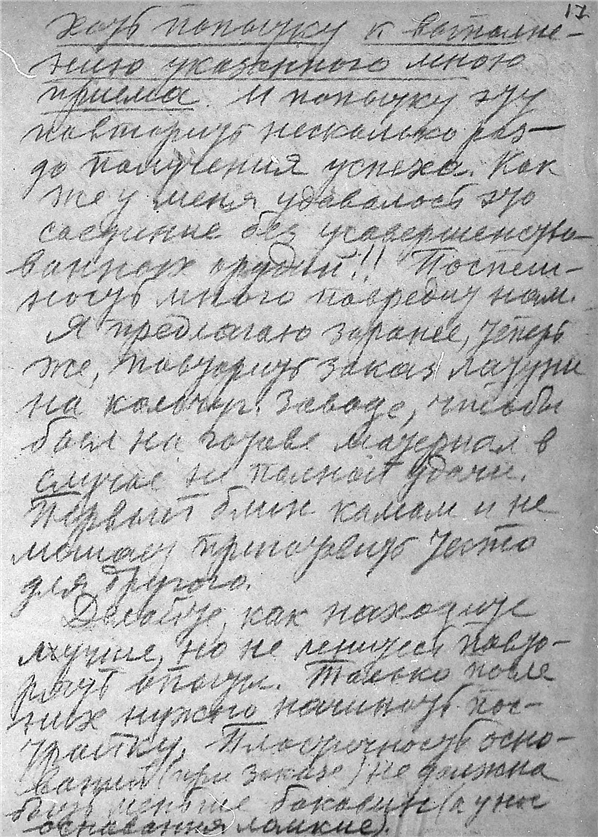 17
хоть попытку к выполне-
нию указанного мною
приема. И попытку эту
повторить несколько раз
до получения успеха. Как
же у меня удавалось это
без усовершенство-
ванных орудий!!! Поспеш-
ность много повредит нам.
Я предлагаю заранее, теперь
же, повторить заказ латуни
на кольчуг. заводе, чтобы
был на готове материал в
случае не полной удачи.
Первый блин комом и не
мешает приготовить тесто
для другого.
Делайте, как находите
лучше, но не ленитесь повто-
рять опыты. Только после
них нужно начинать пос-
тройку. осно-
ваний (при заказе) не должна
быть меньше боковин (а у них
основания ломкие).